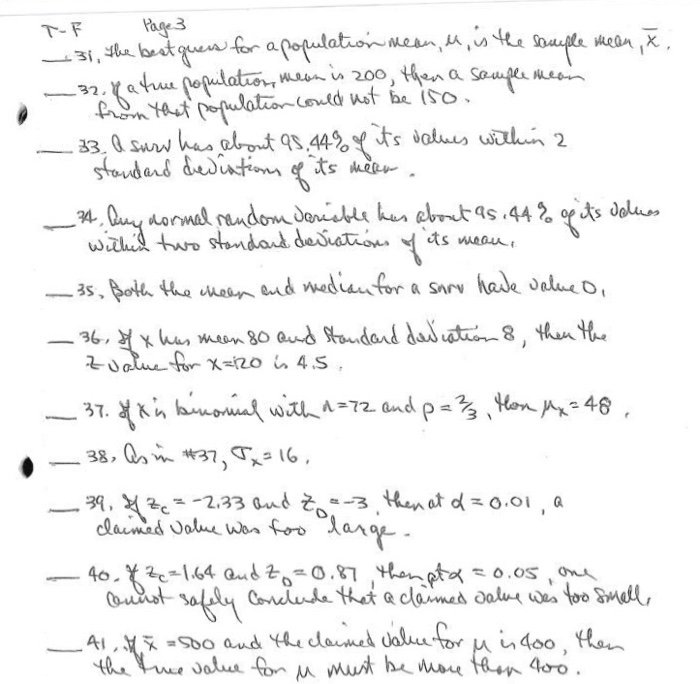 T-F Page 3
__ 31, the best guess for a population mean, μ, is the sample mean, x̄.
__ 32. If a true population, mean is 200, then a sample mean
from that population could not be 150.
__ 33. A snrv has about 95.44% of its values within 2
standard deviations of its mean.
__ 34. Any normal random variable has about 95.44% of its values
within two standard deviations of its mean.
__ 35. Both the mean and median for a snrv have value 0.
__ 36. If x has mean 80 and standard deviation 8, then the
z value for x=120 is 4.5.
__ 37. If x is binomial with n=72 and p=2/3, then μx=48.
__ 38. As in #37, σx=16.
__ 39. If zc = -2.33 and z0 = -3, then at α = 0.01, a
claimed value was too large.
__ 40. If zc=1.64 and z0=0.87, then at α = 0.05, one
cannot safely conclude that a claimed value was too small.
__ 41. If x̄ =500 and the claimed value for μ is 400, then
the true value for μ must be more than 400.